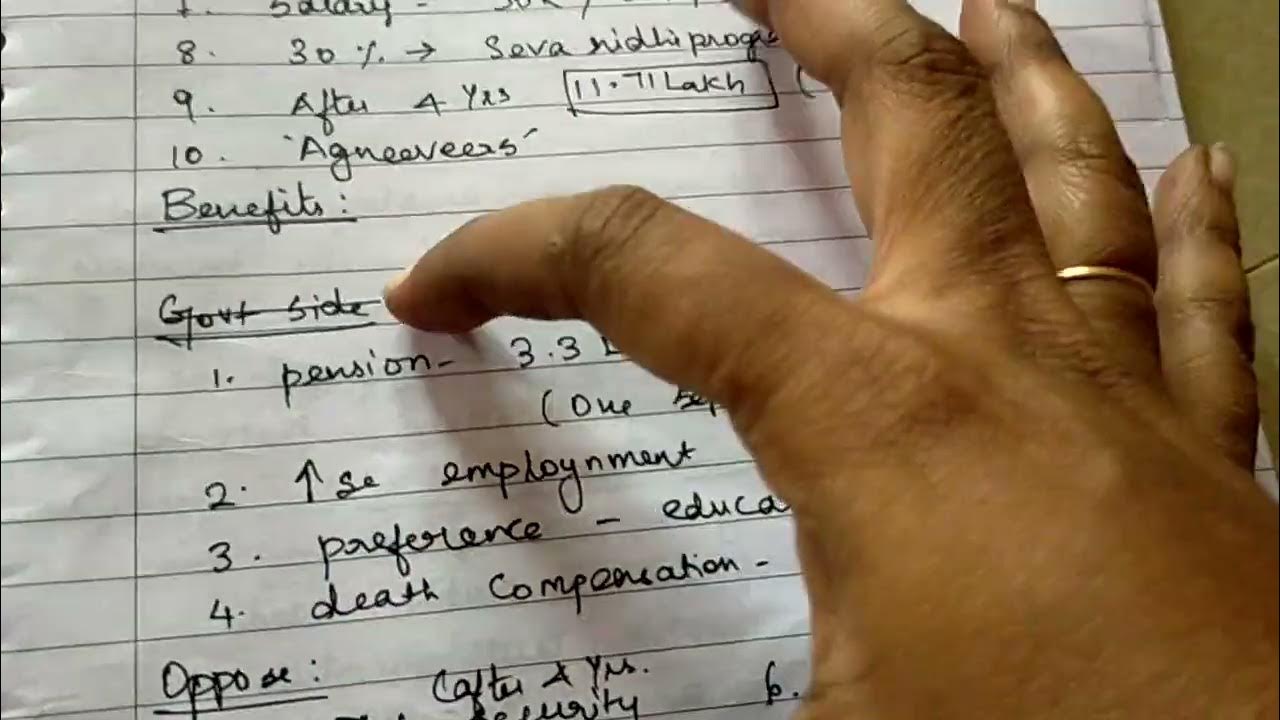 7. Salary - 30K /
8. 30% → Seva nidhi progr
9. After 4 Yrs 11.71 Lakh (
10. "Agneeveers"
Benefits:
Govt side
1. pension - 3.3 L
(One
2. ↑se employnment
3. preference - educa
4. death compensation -
Oppose: (after 4 Yrs.
6.
security